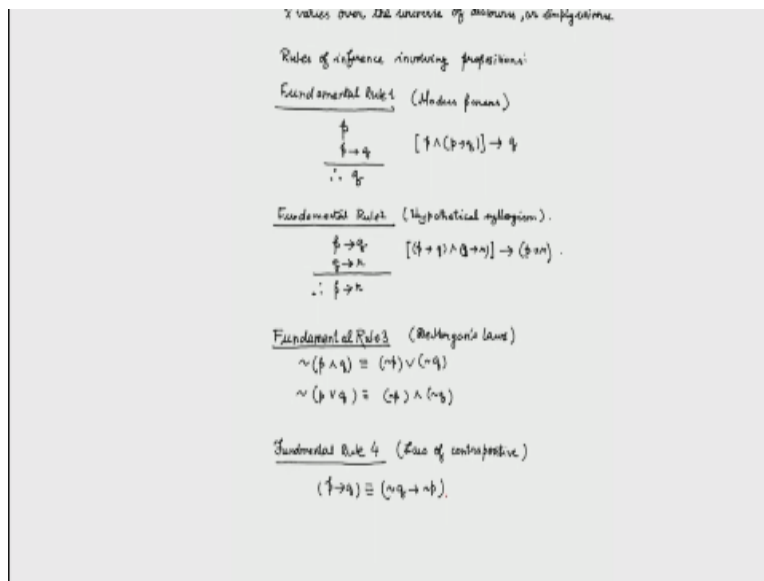 x varies over, the universe of discourse, or simply universe.
Rules of inference involving propositions:
Fundamental Rule 1 (Modus ponens)
p
p→q [p∧(p→q)]→q
∴ q
Fundamental Rule 2 (Hypothetical syllogism).
p→q [(p→q)∧(q→r)]→(p→r).
q→r
∴ p→r
Fundamental Rule 3 (DeMorgan's laws)
~(p∧q) ≡ (~p)∨(~q)
~(p∨q) ≡ (~p)∧(~q)
Fundmental Rule 4 (Law of contrapositive)
(p→q) ≡ (~q→~p).